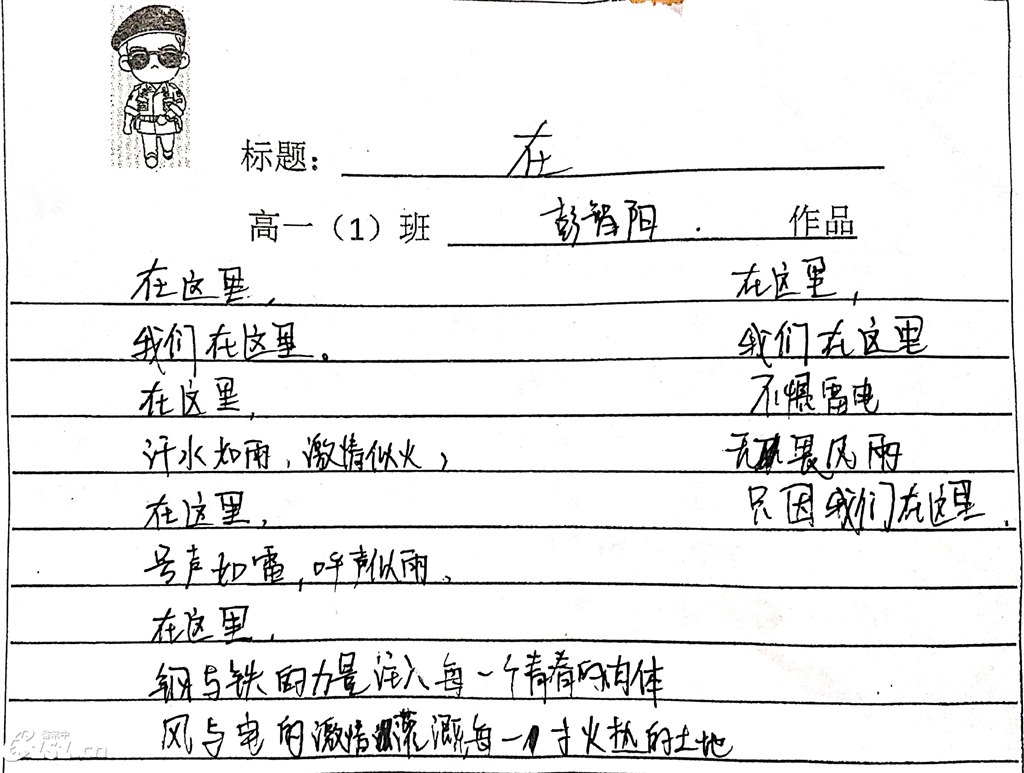 标题：在
高一（1）班 彭智阳 作品
在这里，
我们在这里。
在这里，
汗水如雨，激情似火，
在这里，
号声如雷，呼声似雨。
在这里，
钢与铁的力量注入每一个青春的肉体
风与电的激情灌溉每一寸火热的土地
在这里，
我们在这里
不惧雷电
无畏风雨
只因我们在这里.